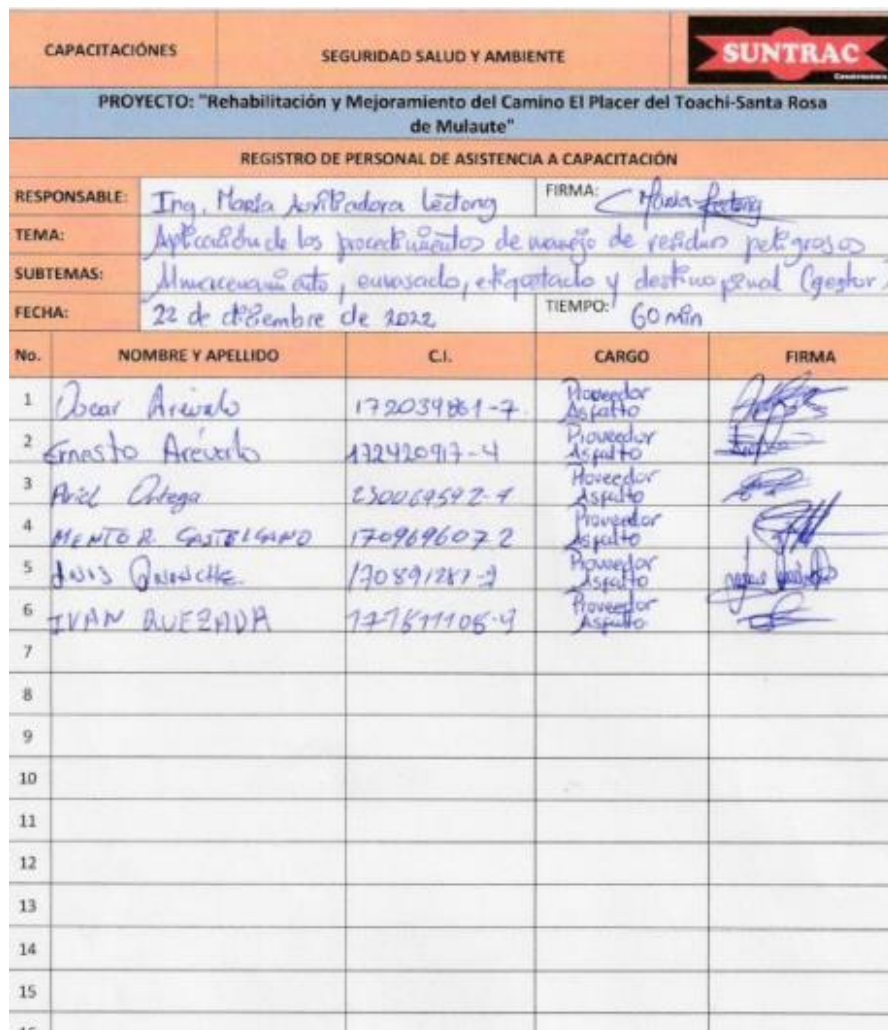 CAPACITACIÓNES
SEGURIDAD SALUD Y AMBIENTE
SUNTRAC
Constructora
PROYECTO: "Rehabilitación y Mejoramiento del Camino El Placer del Toachi-Santa Rosa
de Mulaute"
REGISTRO DE PERSONAL DE ASISTENCIA A CAPACITACIÓN
RESPONSABLE: Ing. María Auxiliadora Lectong FIRMA: María Lectong
TEMA: Aplicación de los procedimientos de manejo de residuos peligrosos
SUBTEMAS: Almacenamiento, envasado, etiquetado y destino final (gestor)
FECHA: 22 de diciembre de 2022 TIEMPO: 60 min
No. NOMBRE Y APELLIDO C.I. CARGO FIRMA
1 Oscar Arévalo 172039861-7 Proveedor Asfalto
2 Ernesto Arévalo 172420917-4 Proveedor Asfalto
3 Ariel Ortega Proveedor Asfalto
4 MENTOR CASTELLANO 170969607 2 Proveedor Asfalto
5 LUIS 170891287-2 Proveedor Asfalto
6 IVAN QUEZADA Proveedor Asfalto
7
8
9
10
11
12
13
14
15